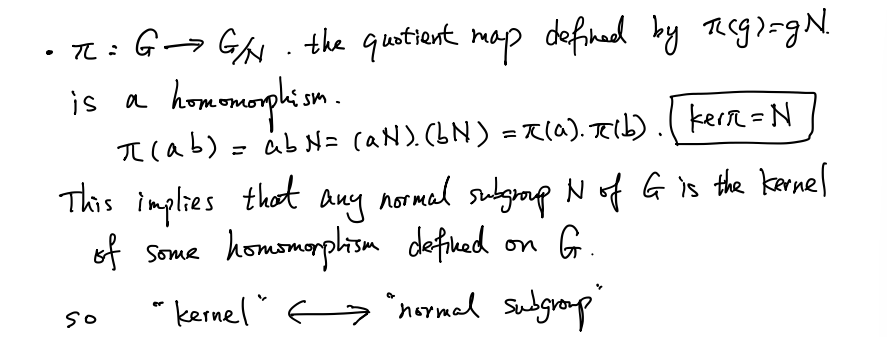 • π : G → G/N . the quotient map defined by π(g)=gN.
is a homomorphism.
π(ab) = abN = (aN).(bN) = π(a).π(b). kerπ = N
This implies that any normal subgroup N of G is the kernel
of some homomorphism defined on G.
so "kernel" ⟷ "normal subgroup"